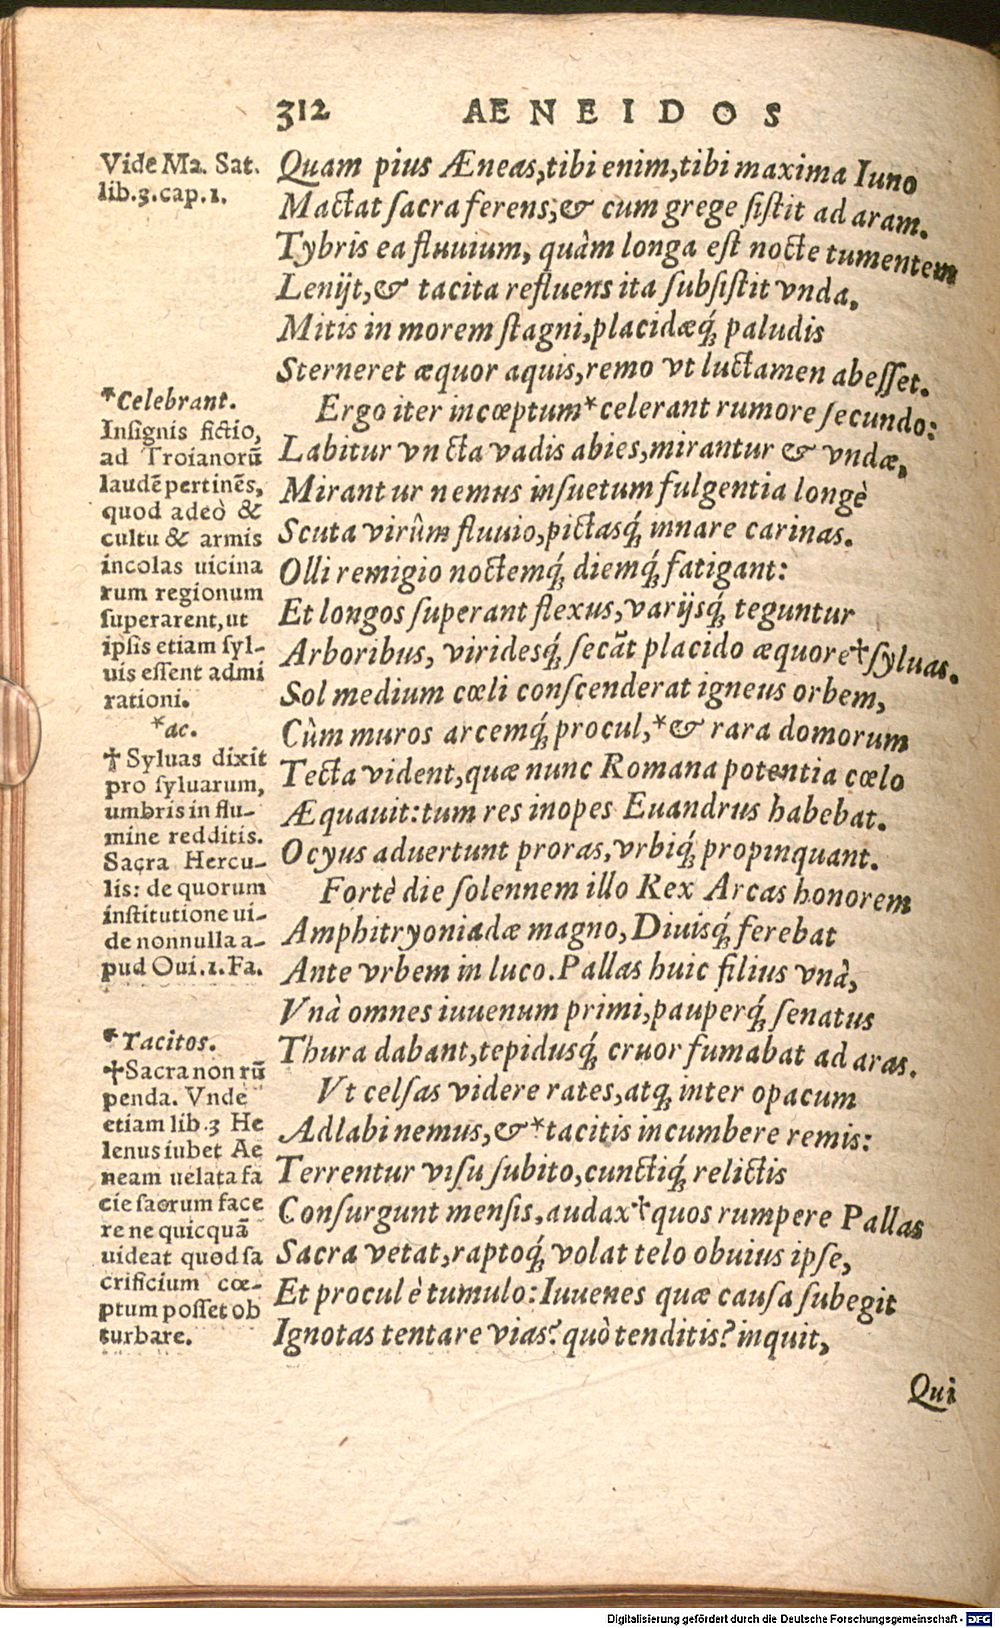 312 AENEIDOS
Vide Ma. Sat.
lib.3.cap.1.
Quam pius Æneas,tibi enim,tibi maxima Iuno
Mactat ſacra ferens,& cum grege ſiſtit ad aram.
Tybris ea fluuium, quàm longa eſt nocte tumentem
Lenijt,& tacita refluens ita ſubſiſtit vnda,
Mitis in morem ſtagni,placidæq́; paludis
Sterneret æquor aquis,remo vt luctamen abeſſet.
Ergo iter incœptum*celerant rumore ſecundo:
Labitur vncta vadis abies,mirantur & vndæ,
Mirantur nemus inſuetum fulgentia longè
Scuta virûm fluuio,pictasq́; innare carinas.
Olli remigio noctemq́; diemq́; fatigant:
Et longos ſuperant flexus,varijsq́; teguntur
Arboribus, viridesq́; ſecāt placido æquore†ſyluas.
Sol medium cœli conſcenderat igneus orbem,
Cùm muros arcemq́; procul,*& rara domorum
Tecta vident,quæ nunc Romana potentia cœlo
Æquauit:tum res inopes Euandrus habebat.
Ocyus aduertunt proras,vrbiq́; propinquant.
Fortè die ſolennem illo Rex Arcas honorem
Amphitryoniadæ magno,Diuisq́; ferebat
Ante vrbem in luco.Pallas huic filius vnà,
Vnà omnes iuuenum primi,pauperq́; ſenatus
Thura dabant,tepidusq́; cruor fumabat ad aras.
Vt celſas videre rates,atq; inter opacum
Adlabi nemus,&*tacitis incumbere remis:
Terrentur viſu ſubito,cunctiq́; relictis
Conſurgunt menſis,audax†quos rumpere Pallas
Sacra vetat,raptoq́; volat telo obuius ipſe,
Et procul è tumulo:Iuuenes quæ cauſa ſubegit
Ignotas tentare vias?quò tenditis?inquit,
Qui
*Celebrant.
Inſignis fictio,
ad Troianorū
laudē pertinēs,
quod adeò &
cultu & armis
incolas uicina
rum regionum
ſuperarent,ut
ipſis etiam ſyl-
uis eſſent admi
rationi.
*ac.
†Syluas dixit
pro ſyluarum,
umbris in flu-
mine redditis.
Sacra Hercu-
lis: de quorum
inſtitutione ui-
de nonnulla a-
pud Oui.1.Fa.
*Tacitos.
†Sacra non rū
penda. Vnde
etiam lib.3 He
lenus iubet Ae
neam uelata fa
cie ſacrum face
re ne quicquā
uideat quod ſa
crificium cœ-
ptum poſſet ob
turbare.
Digitalisierung gefördert durch die Deutsche Forschungsgemeinschaft - DFG